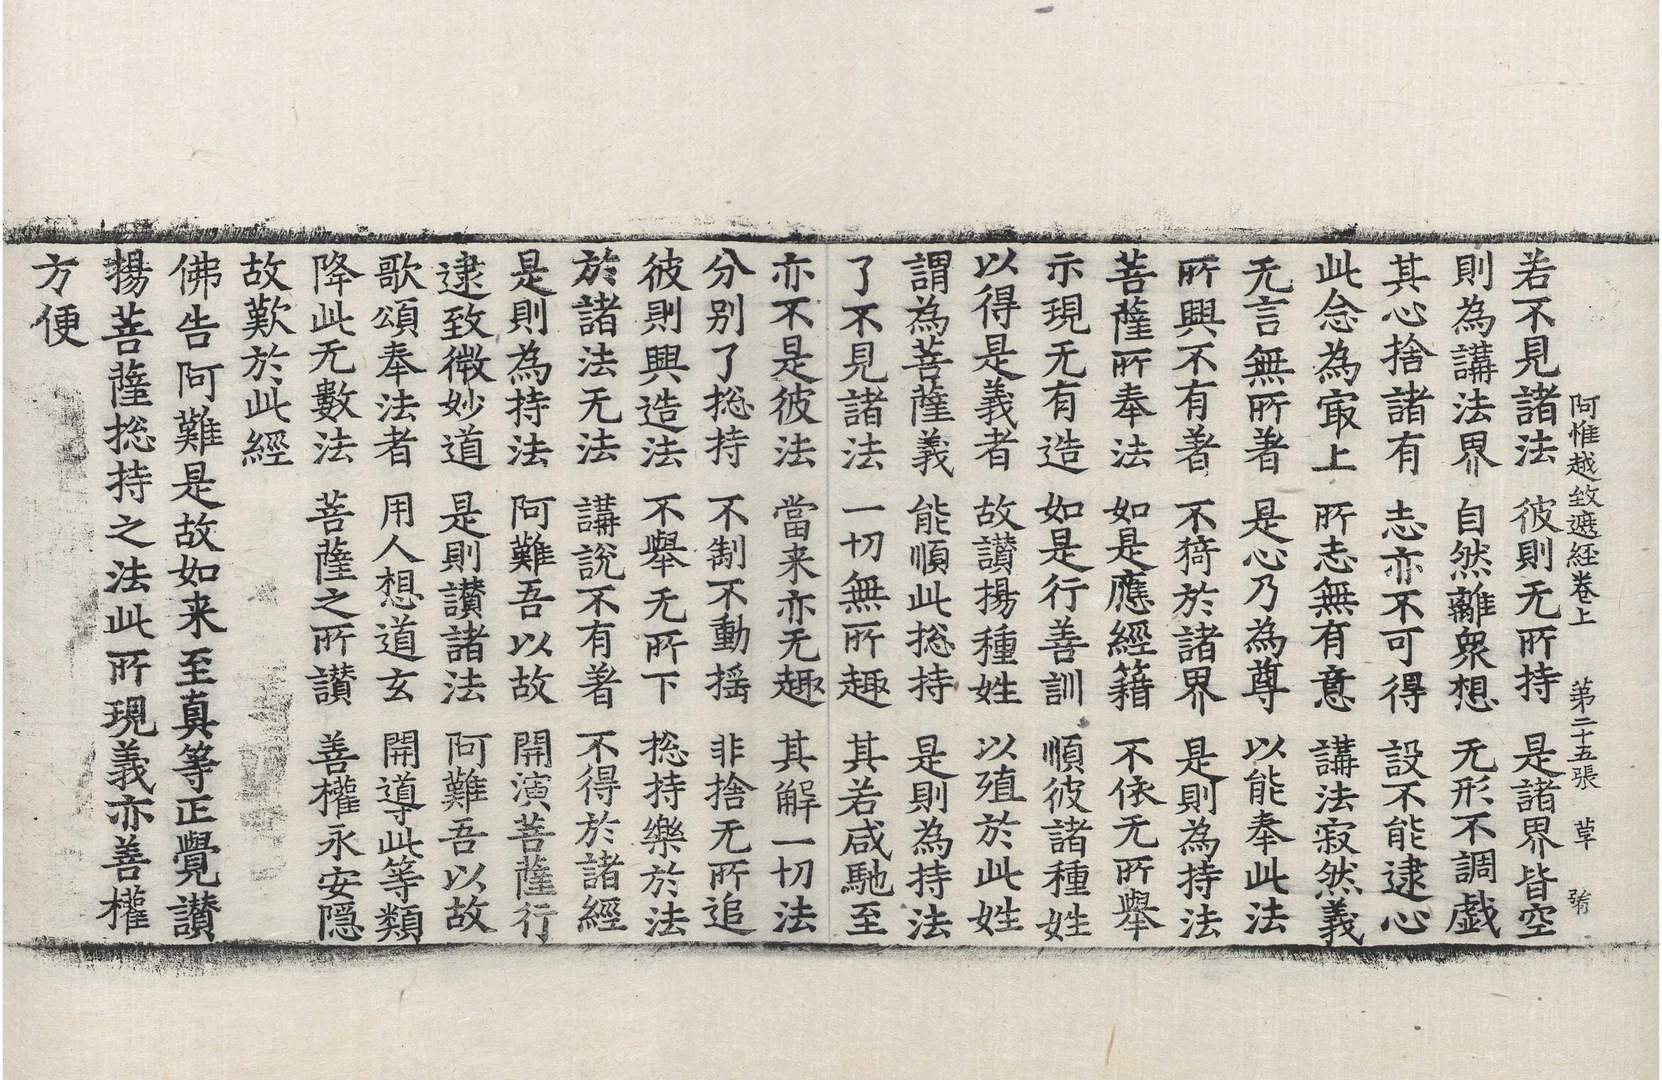 阿惟越致遮經卷上　第二十五張　草
若不見諸法　彼則无所持　是諸界皆空
則為講法界　自然離衆想　无形不調戱
其心捨諸有　志亦不可得　設不能逮心
此念為㝡上　所志無有意　講法寂然義
无言無所著　是心乃為尊　以能奉此法
所興不有著　不猗於諸界　是則為持法
菩薩所奉法　如是應經籍　不依无所舉
示現无有造　如是行善訓　順彼諸種姓
以得是義者　故讃揚種姓　以殖於此姓
謂為菩薩義　能順此揔持　是則為持法
了不見諸法　一切無所趣　其若咸馳至
亦不是彼法　當来亦无趣　其解一切法
分別了揔持　不制不動揺　非捨无所追
彼則興造法　不舉无所下　揔持樂於法
於諸法无法　講說不有著　不得於諸經
是則為持法　阿難吾以故　開演菩薩行
逮致微妙道　是則讃諸法　阿難吾以故
歌頌奉法者　用人想道玄　開導此等類
降此无數法　菩薩之所讃　善權永安隠
故歎於此經
佛告阿難是故如来至真等正覺讃
揚菩薩揔持之法此所現義亦善權
方便